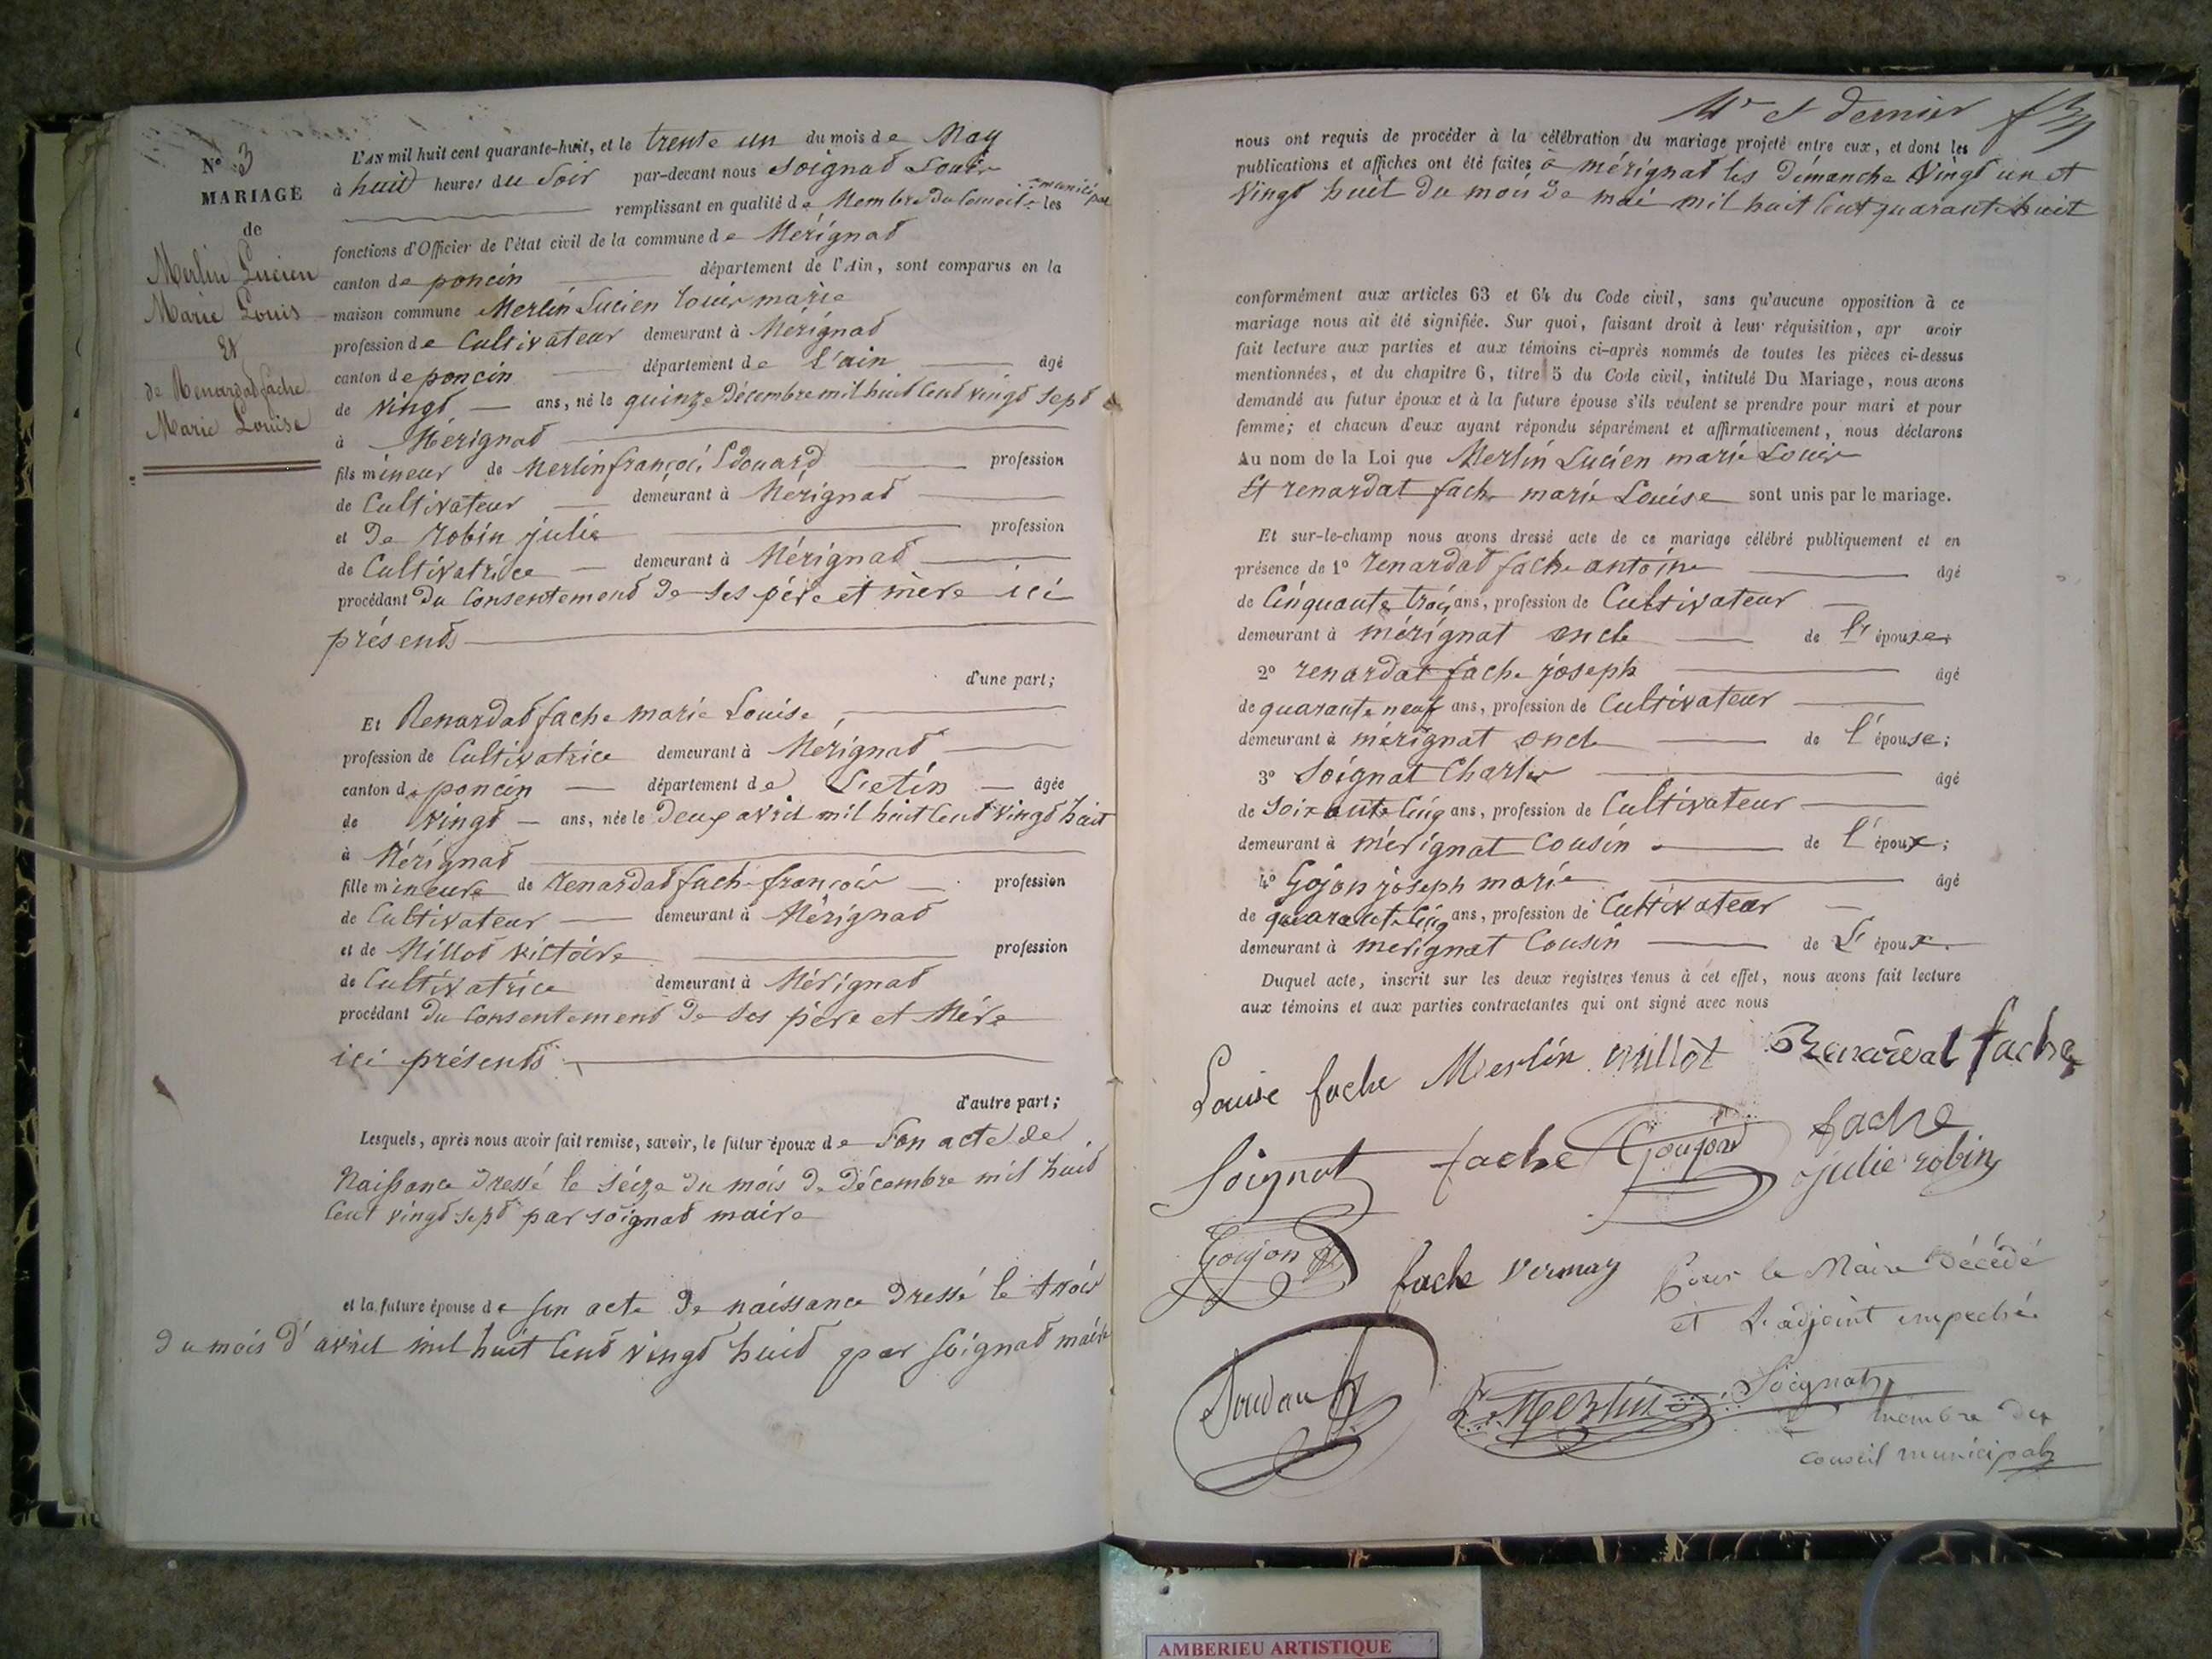 N° 3
MARIAGE
de
Merlin Lucien
Marie Louis
Et
de Renardat fache
Marie Louise
L'AN mil huit cent quarante-huit, et le trente un du mois de May
à huit heures du Soir par-devant nous Soignat Louis
remplissant en qualité de Membre du Conseil municipal les
fonctions d'Officier de l'état civil de la commune de Mérignat
canton de poncin département de l'Ain, sont comparus en la
maison commune Merlin Lucien Louis marie
profession de Cultivateur demeurant à Mérignat
canton de poncin département de l'ain âgé
de vingt ans, né le quinze Décembre mil huit Cent vingt Sept
à Mérignat
fils mineur de Merlin françois Edouard profession
de Cultivateur demeurant à Mérignat
et de Robin julie profession
de Cultivatrice demeurant à Mérignat
procédant du Consentement de ses père et mère ici
présents
d'une part;
Et Renardat fache marie Louise,
profession de Cultivatrice demeurant à Mérignat
canton de poncin département de âgée
de vingt ans, née le Deux avril mil huit Cent vingt huit
à Mérignat
fille mineure de renardat fache françois profession
de Cultivateur demeurant à Mérignat
et de Millot victoire profession
de Cultivatrice demeurant à Mérignat
procédant du Consentement de ses père et Mère
ici présents
d'autre part;
Lesquels, après nous avoir fait remise, savoir, le futur époux de Son acte de
Naissance dressé le séize du mois de décembre mil huit
Cent vingt sept par soignat maire
et la future épouse de son acte de naissance dressé le trois
du mois d'avril mil huit Cent vingt huit par soignat maire
4e et dernier
nous ont requis de procéder à la célébration du mariage projeté entre eux, et dont les
publications et affiches ont été faites à mérignat les dimanche Vingt un et
Vingt huit du mois de mai mil huit Cent quarante huit
conformément aux articles 63 et 64 du Code civil, sans qu'aucune opposition à ce
mariage nous ait été signifiée. Sur quoi, faisant droit à leur réquisition, apr avoir
fait lecture aux parties et aux témoins ci-après nommés de toutes les pièces ci-dessus
mentionnées, et du chapitre 6, titre 5 du Code civil, intitulé Du Mariage, nous avons
demandé au futur époux et à la future épouse s'ils veulent se prendre pour mari et pour
femme; et chacun d'eux ayant répondu séparément et affirmativement, nous déclarons
Au nom de la Loi que Merlin Lucien marie Louis
Et renardat fache marie Louise sont unis par le mariage.
Et sur-le-champ nous avons dressé acte de ce mariage célébré publiquement et en
présence de 1° renardat fache antoine âgé
de Cinquante trois ans, profession de Cultivateur
demeurant à mérignat oncle de l'épouse
2° renardat fache joseph âgé
de quarante neuf ans, profession de Cultivateur
demeurant à mérignat oncle de l'épouse;
3° Soignat Charles âgé
de soixante Cinq ans, profession de Cultivateur
demeurant à mérignat Cousin de l'époux;
4° Gojon joseph marie âgé
de quarante Cinq ans, profession de Cultivateur
demeurant à merignat Cousin de L'époux.
Duquel acte, inscrit sur les deux registres tenus à cet effet, nous avons fait lecture
aux témoins et aux parties contractantes qui ont signé avec nous
Louise fache Merlin millot Renardat fache
Soignat fache Goujon fache
julie robin
Goujon fache vermay Pour le Maire Décédé
et L'adjoint empeché
Merlin Soignat
membre du
conseil municipal
AMBERIEU ARTISTIQUE